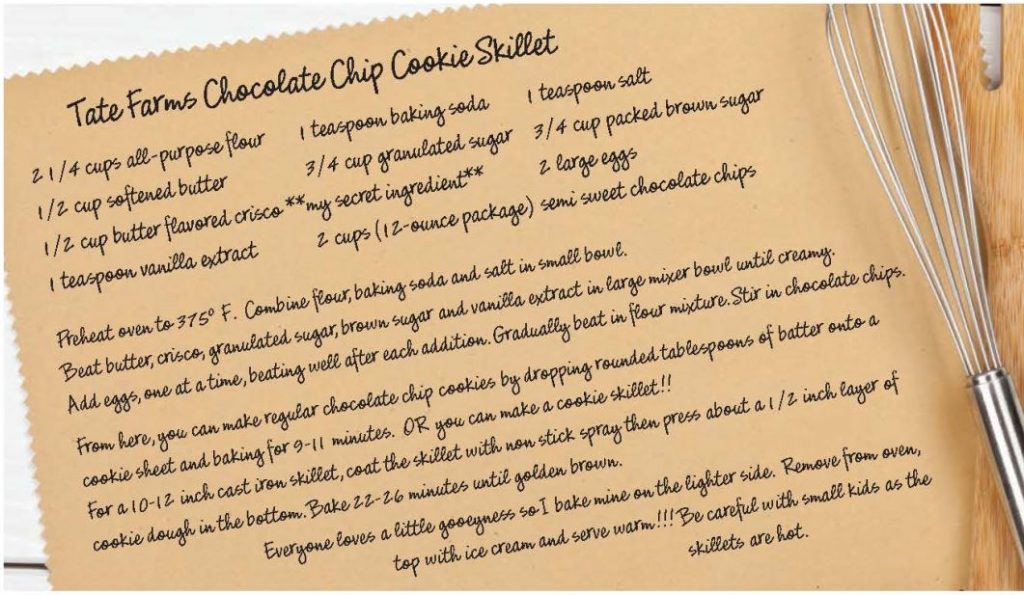 Tate Farms Chocolate Chip Cookie Skillet
2 1/4 cups all-purpose flour 1 teaspoon baking soda 1 teaspoon salt
1/2 cup softened butter 3/4 cup granulated sugar 3/4 cup packed brown sugar
1/2 cup butter flavored crisco **my secret ingredient** 2 large eggs
1 teaspoon vanilla extract 2 cups (12-ounce package) semi sweet chocolate chips
Preheat oven to 375° F. Combine flour, baking soda and salt in small bowl.
Beat butter, crisco, granulated sugar, brown sugar and vanilla extract in large mixer bowl until creamy.
Add eggs, one at a time, beating well after each addition. Gradually beat in flour mixture. Stir in chocolate chips.
From here, you can make regular chocolate chip cookies by dropping rounded tablespoons of batter onto a
cookie sheet and baking for 9-11 minutes. OR you can make a cookie skillet!!
For a 10-12 inch cast iron skillet, coat the skillet with non stick spray then press about a 1/2 inch layer of
cookie dough in the bottom. Bake 22-26 minutes until golden brown.
Everyone loves a little gooeyness so I bake mine on the lighter side. Remove from oven,
top with ice cream and serve warm!!! Be careful with small kids as the
skillets are hot.